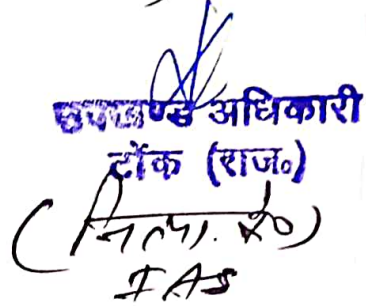 उपखण्ड अधिकारी
टोंक (राज०)
IAS